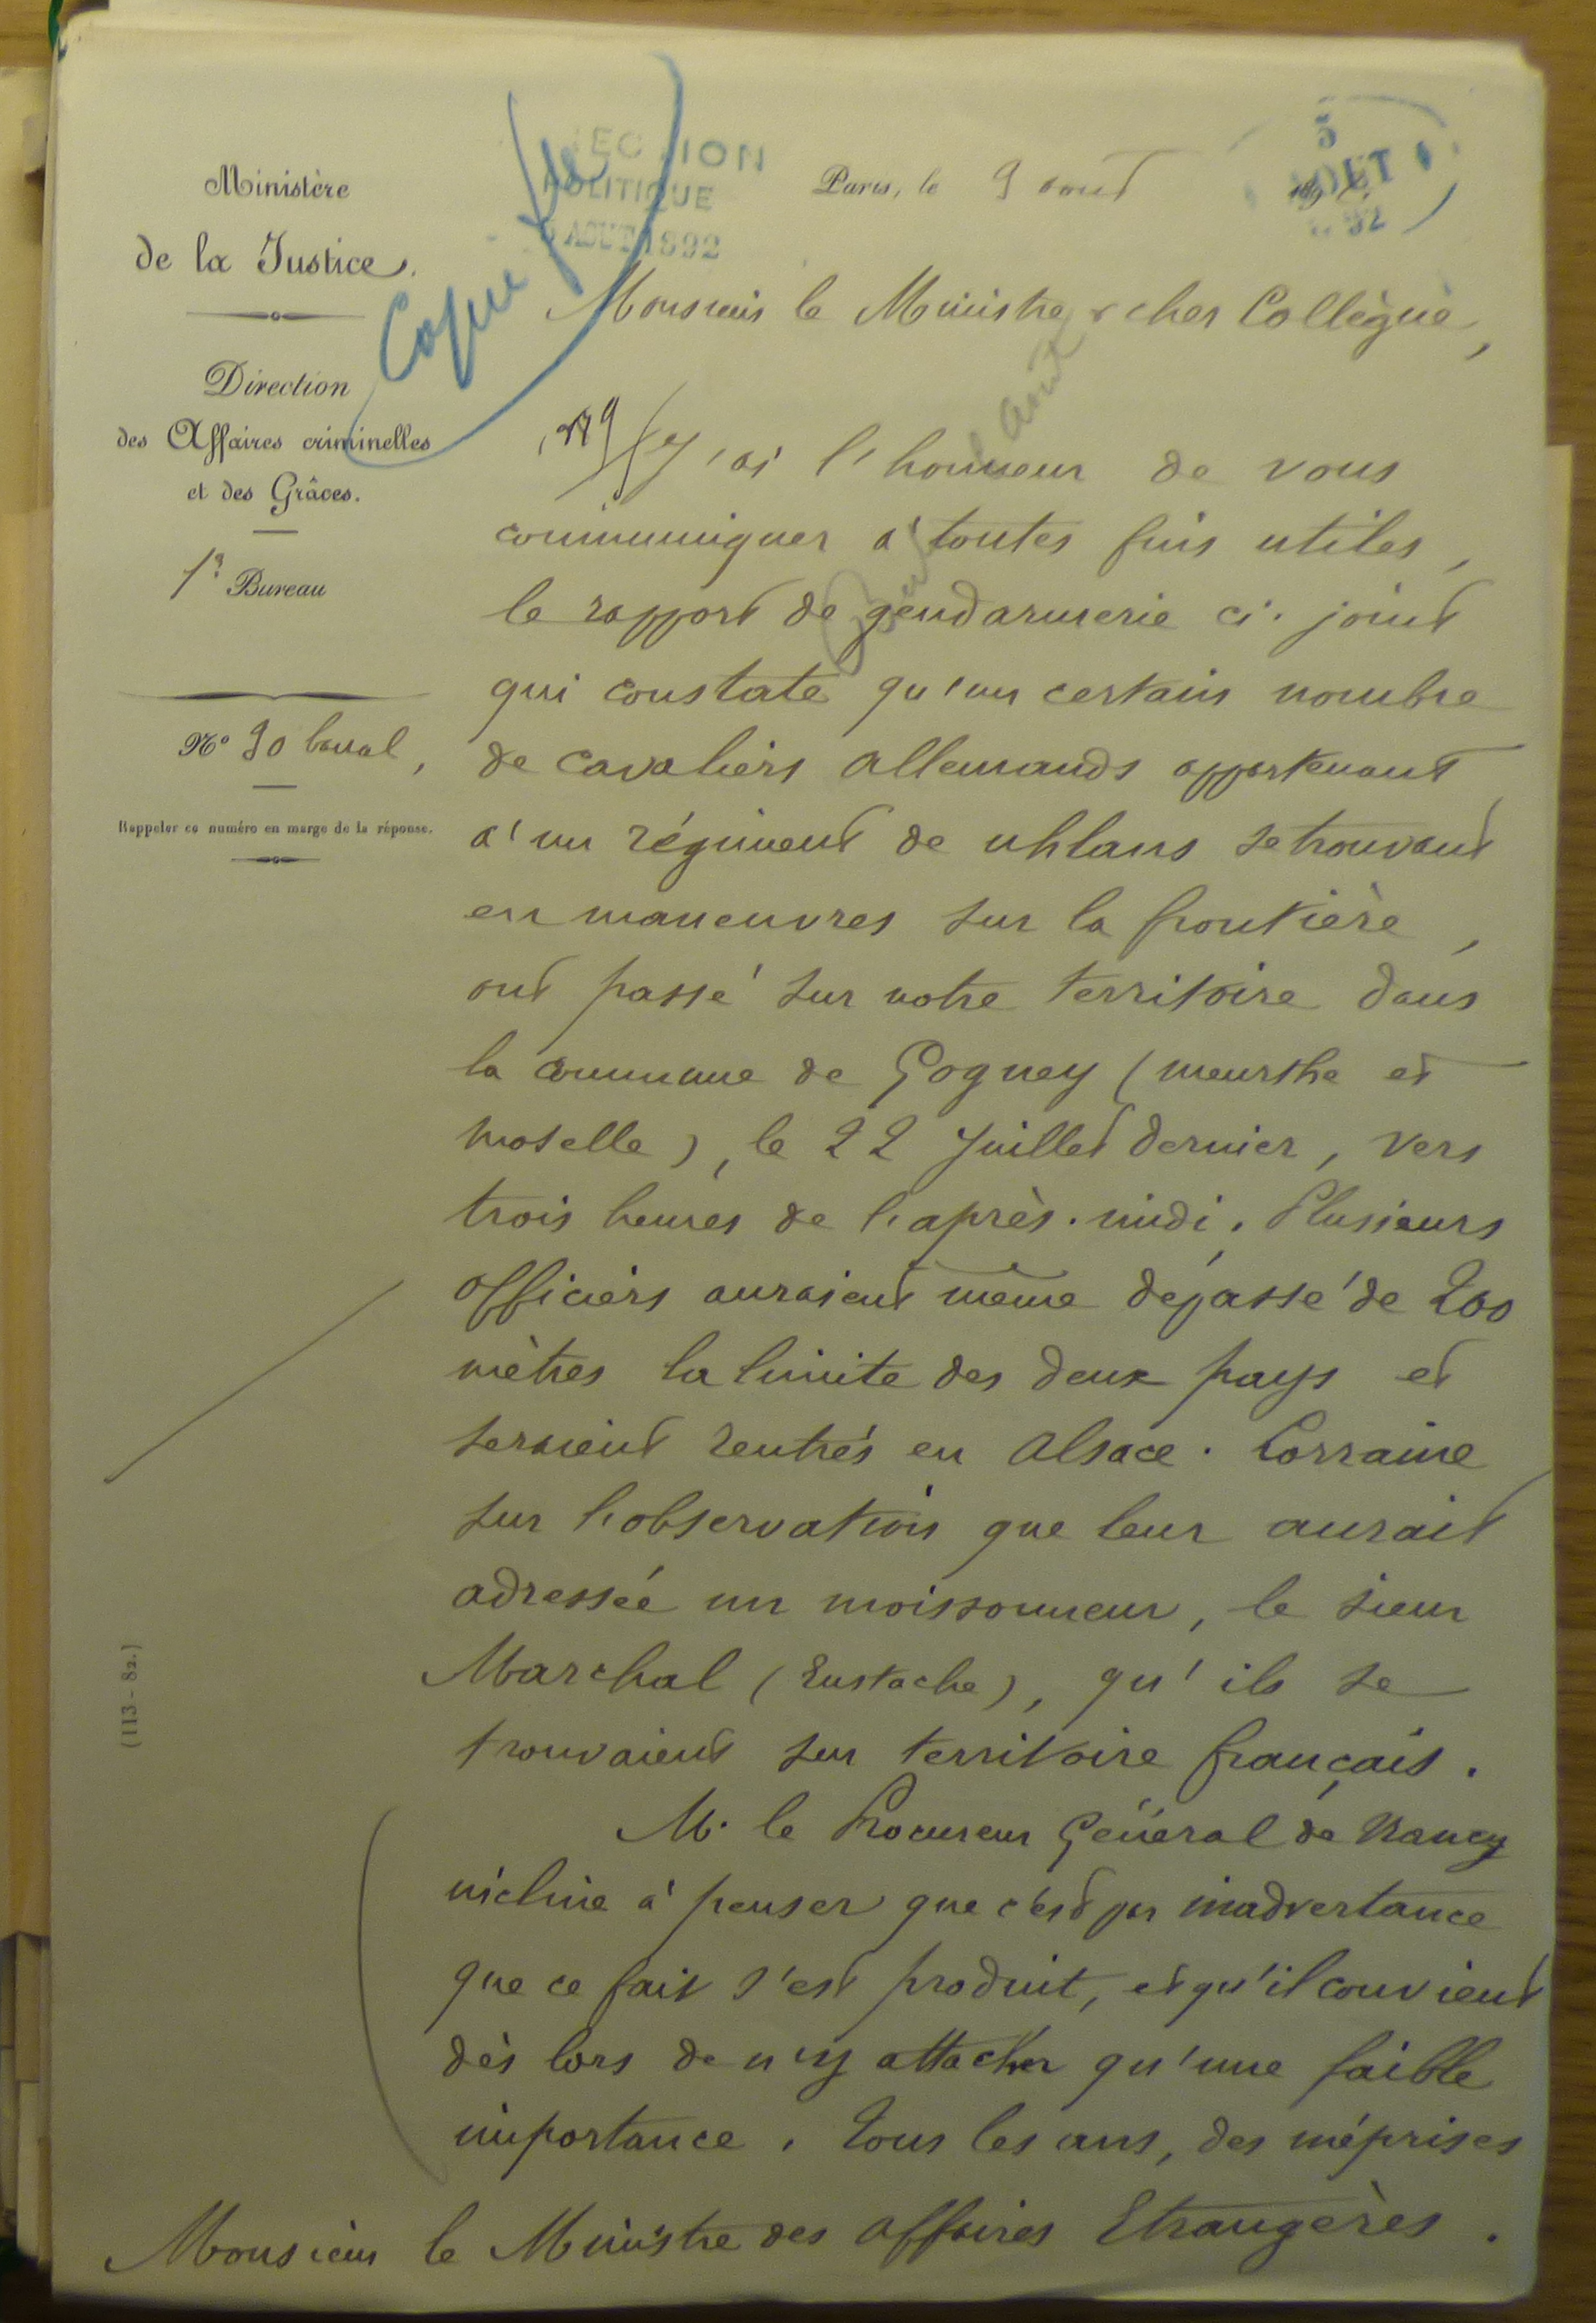 Ministère
de la Justice.
Direction
des Affaires criminelles
et des Grâces.
1er Bureau
No 90 banal,
Rappeler ce numéro en marge de la réponse.
(113-82.)
SECTION
POLITIQUE
AOUT 1892
Copie
Paris, le 9 aout 189
5
AOUT
92
Monsieur le Ministre & cher Collègue,
J'ai l'honneur de vous
communiquer à toutes fins utiles,
le rapport de gendarmerie ci-joint
qui constate qu'un certain nombre
de cavaliers allemands appartenant
à un régiment de uhlans se trouvant
en maneuvres sur la frontière,
ont passé sur notre territoire dans
la commune de Gogney (meurthe et
moselle), le 22 Juillet dernier, vers
trois heures de l'après-midi. Plusieurs
officiers auraient même dépassé de 200
mètres la limite des deux pays et
seraient rentrés en Alsace-Lorraine
sur l'observation que leur aurait
adressée un moissonneur, le sieur
Marchal (Eustache), qu'ils se
trouvaient sur territoire français.
M. le Procureur Général de Nancy
incline à penser que c'est par inadvertance
que ce fait s'est produit, et qu'il convient
dès lors de n'y attacher qu'une faible
importance. Tous les ans, des méprises
Monsieur le Ministre des Affaires Etrangères.